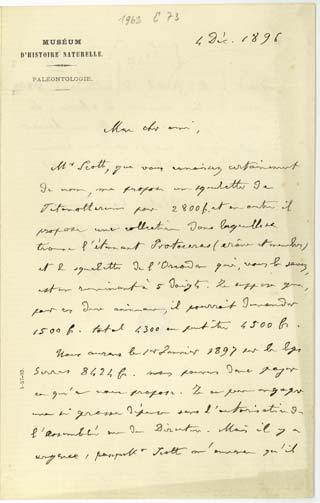 1962 C 73
MUSÉUM
D'HISTOIRE NATURELLE.
PALÉONTOLOGIE.
4 Déc. 1896
Mon cher ami,
Mr Scott, que vous connaissez certainement
de nom, me propose un squelette de
Titanotherium pour 2800 f. et en outre il
propose une collection dans laquelle se
trouve l'étonnant Protoceras (crâne et membres)
et le squelette de l'Oreodon qui, vous le savez,
est un ruminant à 5 doigts. Je suppose que,
pour ces deux animaux, il pourrait demander
1500 fr. total 4300 ou peut être 4500 fr.
Nous aurons le 1er Janvier 1897 sur le legs
Serres 8424 fr. nous pouvons donc payer
ce qu'on nous propose. Je ne peux engager
une si grosse dépense sans l'autorisation de
l'Assemblée ou du Directeur. Mais il y a
urgence, Scott m'annonce qu'il